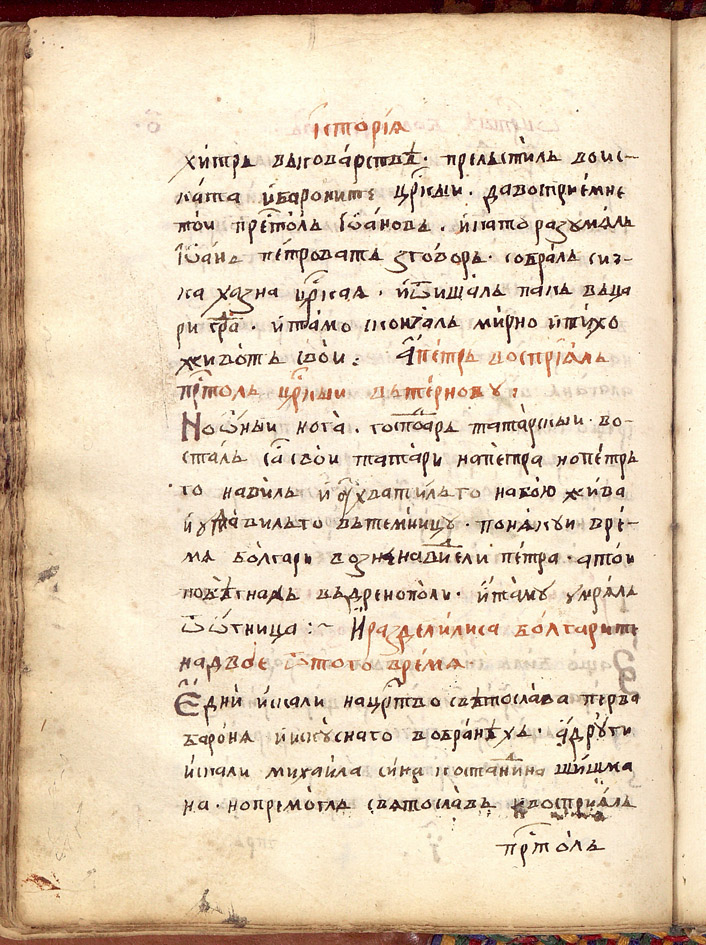 їсторїѧ
хитръ выговарствѣ · прельстилъ воис-
ката и бароните цр҃кыи · да восприемне
той прⷭ҇толъ їѡановъ · и като разумѧлъ
їѡанъ петроватъ зговоръ · собралъ сиз-
ка хазна цр҃каѧ · и ѿишалъ пакъ въ ца
ри граⷣ · и тамо скончалъ мирно и тихо
животъ свои : А петръ восприѧлъ
прⷭ҇толъ цр҃кыи въ терновѹ :
Но ѡныи нога · господаръ татарскыи · во-
сталъ са свои татари на петра но петръ
го навилъ и ѹхватилъ го на бою жива
и ѹдавилъ го въ темницѹ · по нѧкуи вре-
мѧ болгари возненавидели петра · а тои
побѣгналъ въ дренополи · и таму умрѧлъ
ѿ ѡгница :~ И разделилиса болгарите
на двое ѿ того времѧ
Едни искали на црⷭ҇тво свѣтослава перва
баронѧ и искуснаго в обранѣхъ · а други
искали михаила сина костаⷣнина шишма
на · но премоглъ свѧтославъ и восприѧлъ
прⷭ҇толъ